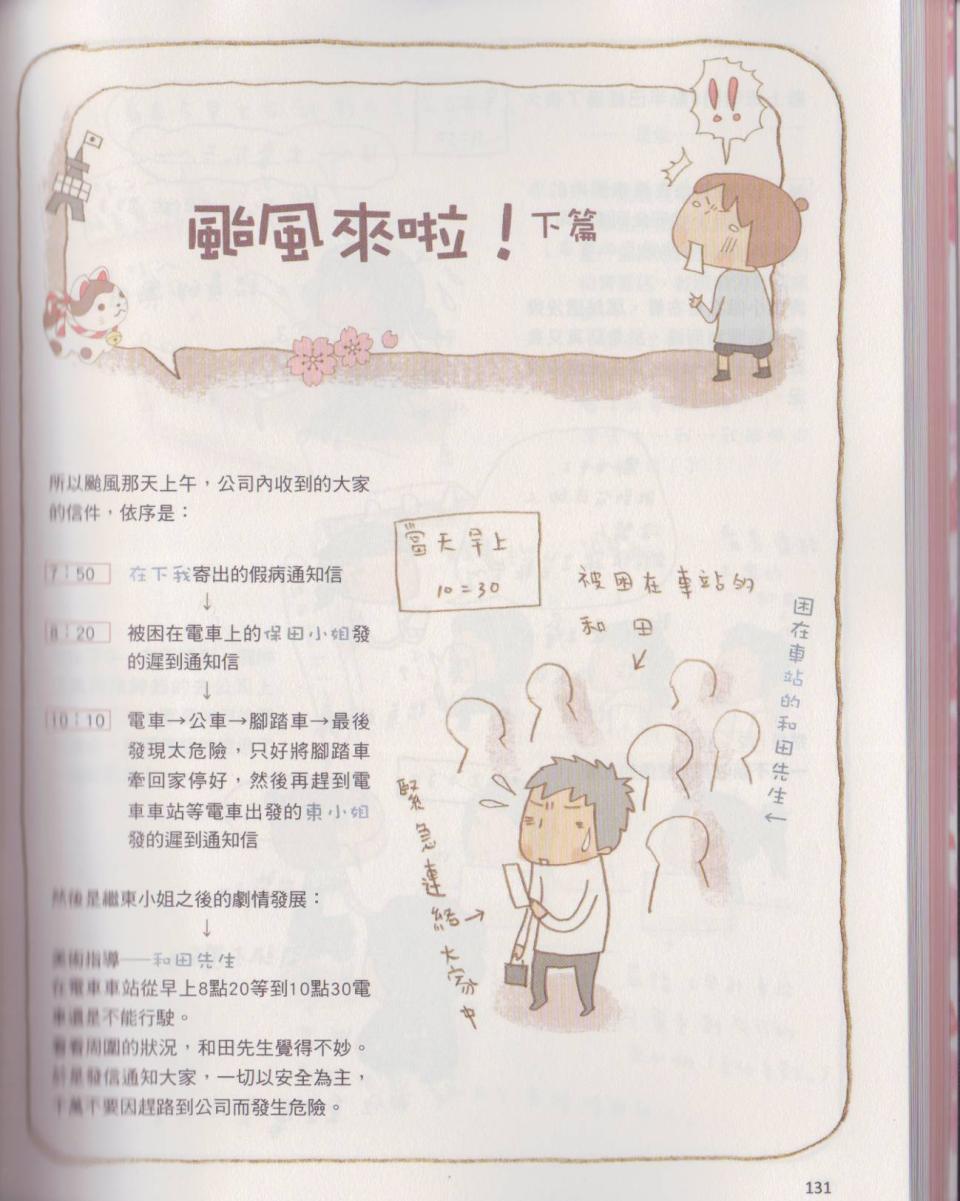 !!
颱風來啦！下篇
所以颱風那天上午，公司內收到的大家
的信件，依序是：
7：50 在下我寄出的假病通知信
↓
8：20 被困在電車上的保田小姐發
的遲到通知信
↓
10：10 電車→公車→腳踏車→最後
發現太危險，只好將腳踏車
牽回家停好，然後再趕到電
車車站等電車出發的東小姐
發的遲到通知信
然後是繼東小姐之後的劇情發展：
↓
美術指導——和田先生
在電車車站從早上8點20等到10點30電
車還是不能行駛。
看看周圍的狀況，和田先生覺得不妙。
於是發信通知大家，一切以安全為主，
千萬不要因趕路到公司而發生危險。
當天早上
10:30
被困在車站的
和田
↙
困在車站的和田先生←
緊急連絡大家中
→
131